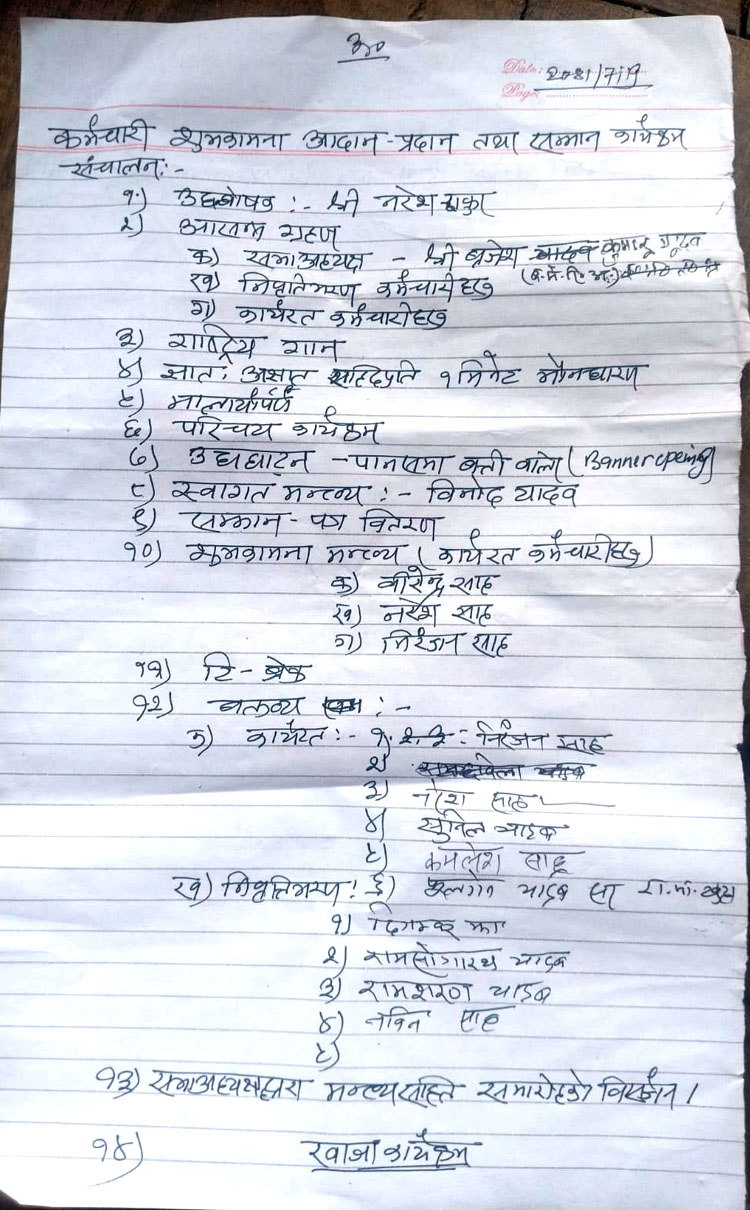 Date: 2081/7/19
Page:
कर्मचारी शुभकामना आदान-प्रदान तथा सम्मान कार्यक्रम
संचालन:-
१.) उद्घोषक :- श्री नरेश
२) आसन ग्रहण
क) सभाअध्यक्ष - श्री ब्रजेश कुमार गुप्त
ख) निवृतिभरण कर्मचारीहरु
ग) कार्यरत कर्मचारीहरु
३) राष्ट्रिय गान
४) ज्ञात: अज्ञात सहिदप्रति १ मिनेट मौनधारण
५) माल्यार्पण
६) परिचय कार्यक्रम
७) उद्घघाटन - पानसमा बत्ती वाली (Banner opening)
८) स्वागत मन्तव्य :- विनोद यादव
९) सम्मान-पत्र वितरण
१०) शुभकामना मन्तव्य (कार्यरत कर्मचारीहरु)
क) वीरेन्द्र साह
ख) नरेश साह
ग) निरंजन साह
११) टि-ब्रेक
१२) वक्तव्य :-
क) कार्यरत :- १. निरंजन साह
२)
३) नरेश साह
४) सुनिल यादव
५) कमलेश साह
ख) निवृतिभरण: ६) यादव
१) दिगम्बर झा
२) रामसोगारथ यादव
३) रामशरण यादव
४) नविन साह
५)
१३) सभाअध्यक्षद्वारा मन्तव्य सहित समारोहको विसर्जन।
१४) खाजा कार्यक्रम